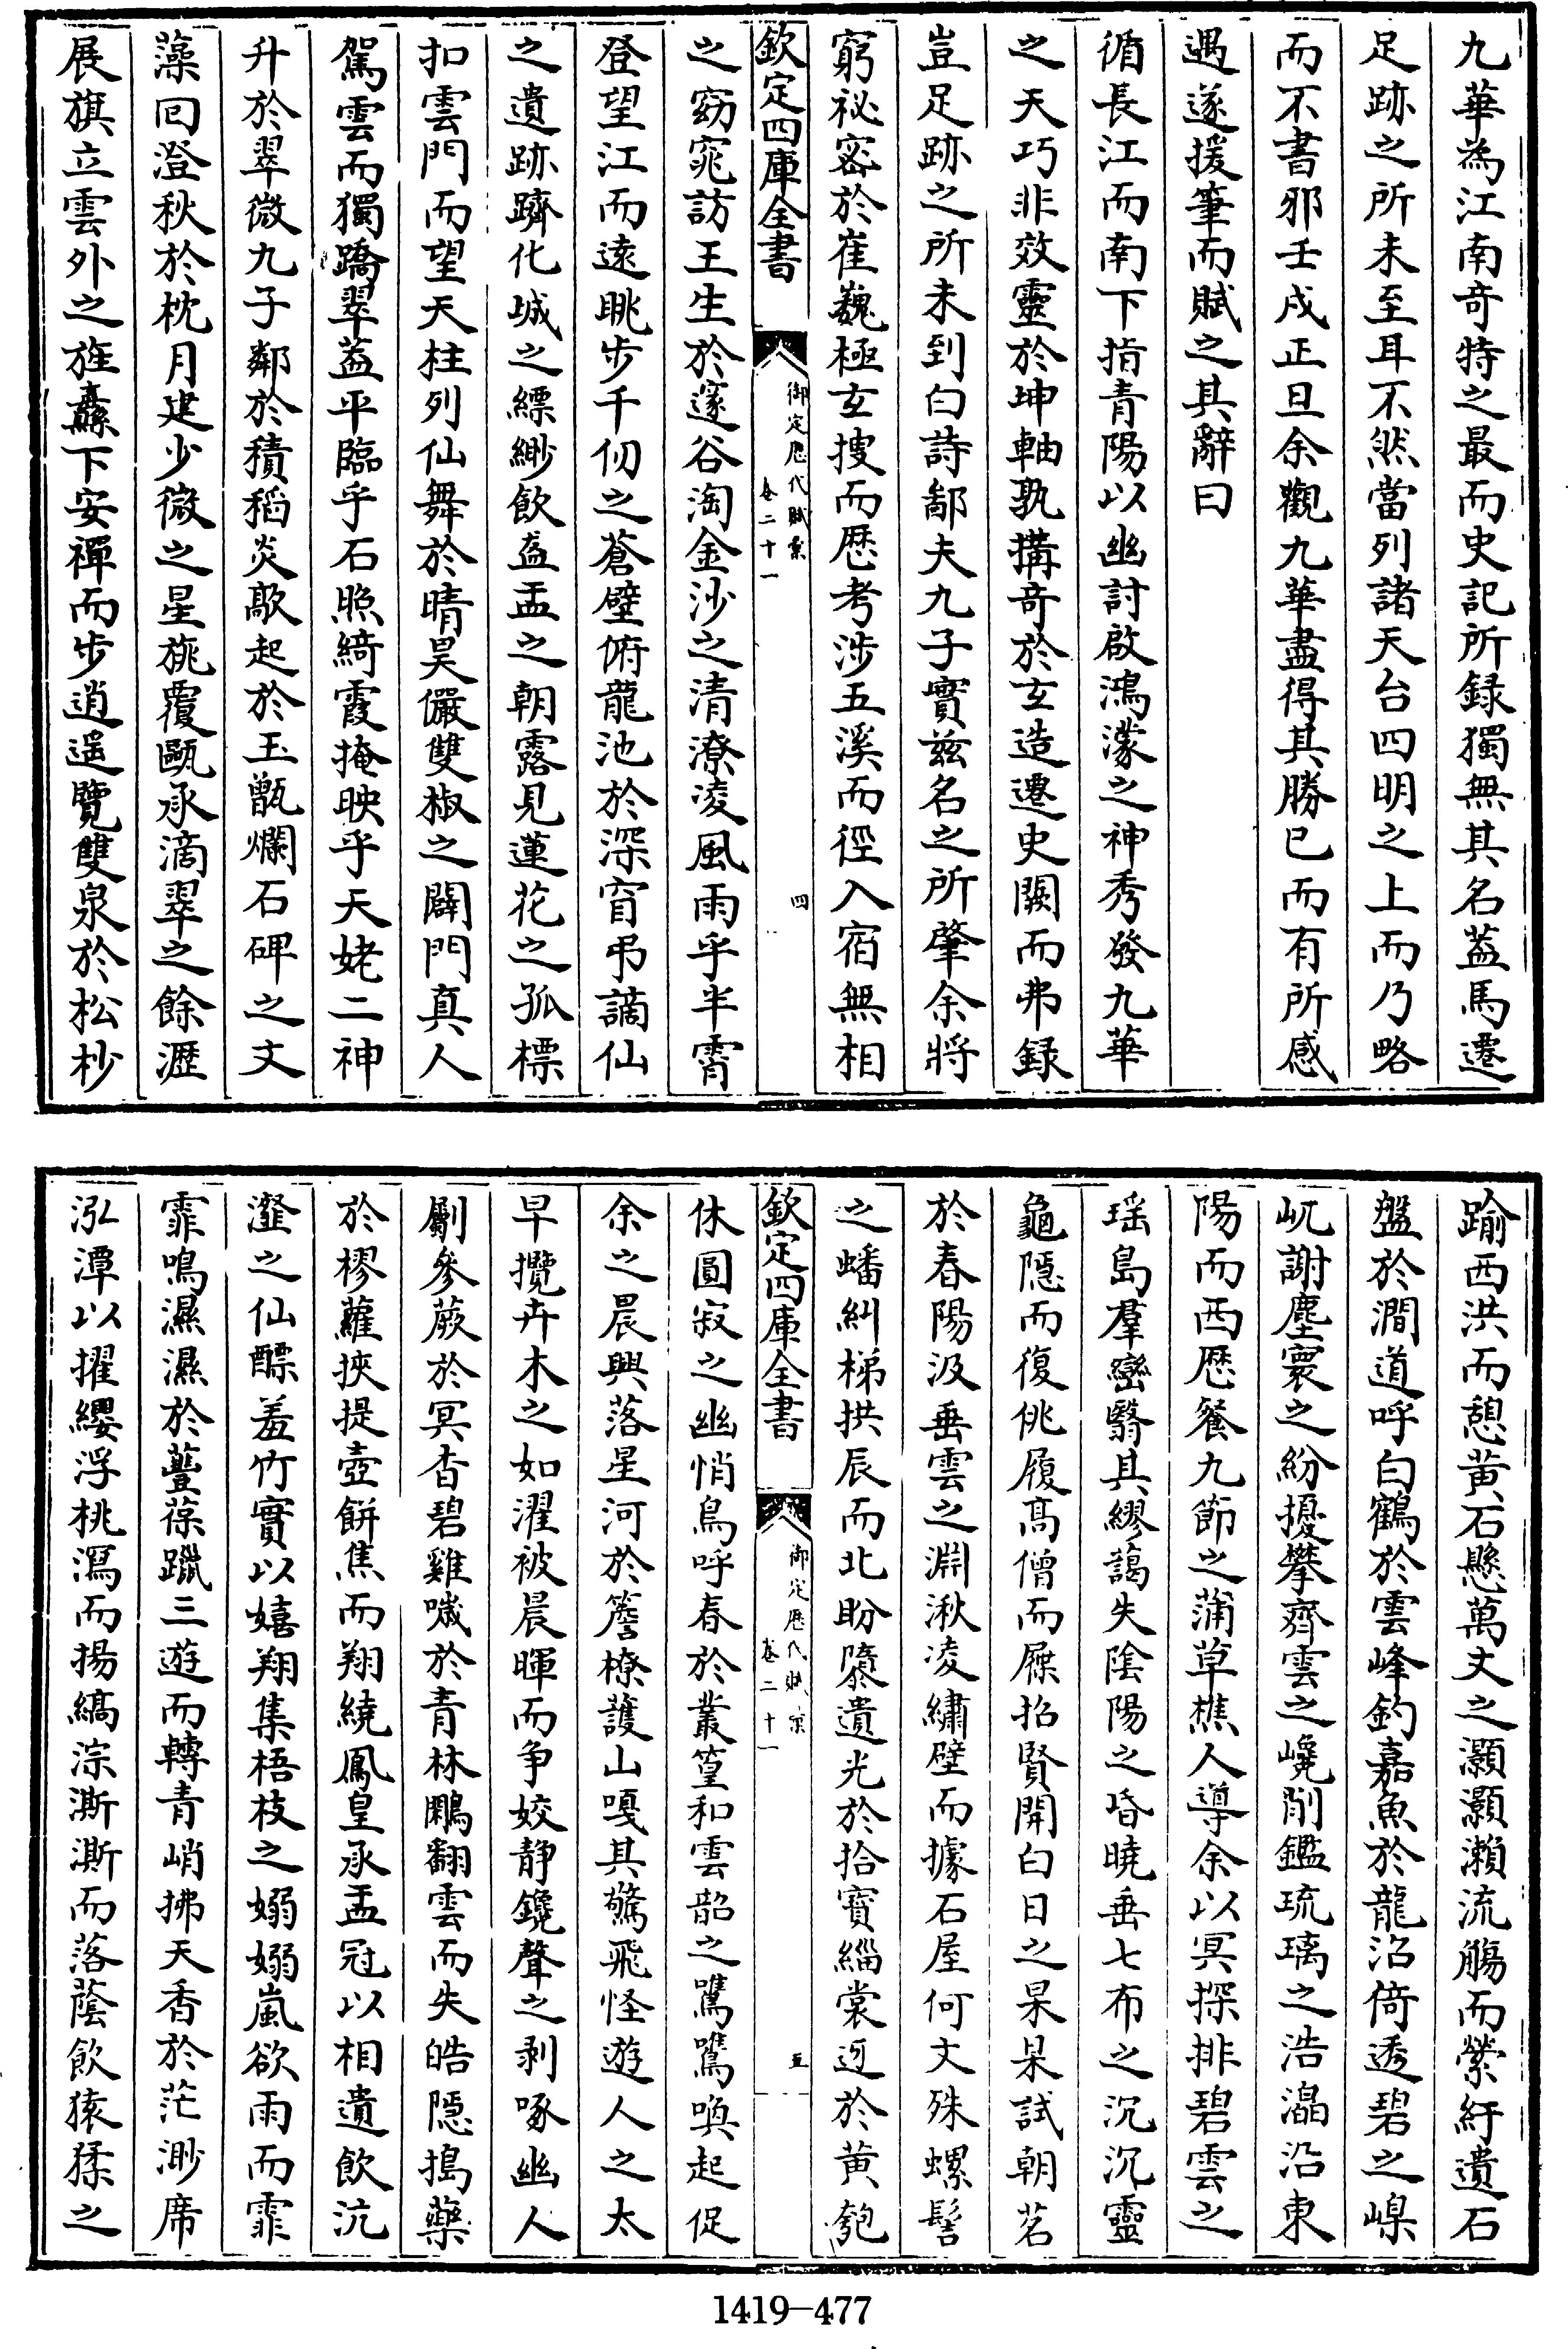 九華為江南奇特之最而史記所録獨無其名葢馬遷
足跡之所未至耳不然當列諸天台四明之上而乃略
而不書邪壬戌正旦余觀九華盡得其勝已而有所感
遇遂援筆而賦之其辭曰
循長江而南下指青陽以幽討啟鴻濛之神秀發九華
之天巧非效靈於坤軸孰搆奇於玄造遷史闕而弗録
豈足跡之所未到白詩鄙夫九子實兹名之所肇余將
窮祕宻於崔巍極玄搜而歴考涉五溪而徑入宿無相
欽定四庫全書
御定歴代賦彙
卷二十一
四
之窈窕訪王生於邃谷淘金沙之清潦凌風雨乎半霄
登望江而逺眺步千仞之蒼壁俯龍池於深窅弔謫仙
之遺跡躋化城之縹緲飲盋盂之朝露見蓮花之孤標
扣雲門而望天柱列仙舞於晴昊儼雙椒之闢門真人
駕雲而獨蹻翠葢平臨乎石照綺霞掩映乎天姥二神
升於翠微九子鄰於積稻炎歊起於玉甑爛石碑之文
藻囘澄秋於枕月建少微之星旐覆甌承滴翠之餘瀝
展旗立雲外之旌纛下安禪而步逍遥覽雙泉於松杪
踰西洪而憩黄石懸萬丈之灝灝瀨流觴而縈紆遺石
盤於澗道呼白鶴於雲峰釣嘉魚於龍沼倚透碧之嵲
屼謝塵寰之紛擾攀齊雲之巉削鑑琉璃之浩溔沿東
陽而西歴餐九節之蒲草樵人導余以冥探排碧雲之
瑶島羣巒翳其繆藹失陰陽之昏曉垂七布之沉沉靈
龜隱而復佻履高僧而屧招賢開白日之杲杲試朝茗
於春陽汲垂雲之淵湫凌繡壁而據石屋何文殊螺髻
之蟠糾梯拱辰而北盼隳遺光於拾寳緇裳迓於黄匏
欽定四庫全書
御定歴代賦彙
卷二十一
五
休圓寂之幽悄鳥呼春於叢篁和雲韶之鷕鷕喚起促
余之晨興落星河於簷橑䕶山嘎其驚飛怪遊人之太
早攬卉木之如濯被晨暉而争姣静鑱聲之剥啄幽人
劚參蕨於冥杳碧雞噦於青林鷴翻雲而失皓隱搗藥
於樛蘿挾提壺餅焦而翔繞鳳皇承盂冠以相遺飲沆
瀣之仙醥羞竹實以嬉翔集梧枝之嫋嫋嵐欲雨而霏
霏鳴濕濕於薆葆躐三遊而轉青峭拂天香於茫渺席
泓潭以擢纓浮桃瀉而揚縞淙澌澌而落蔭飲猿猱之
1419-477